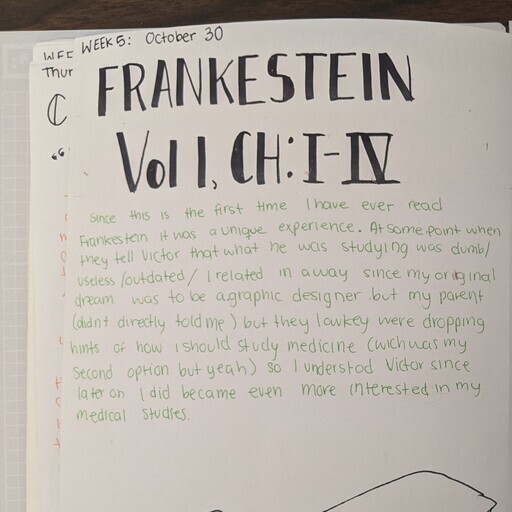 WEEK 5: October 30
Thur
FRANKESTEIN
Vol I, CH: I-IV
Since this is the first time I have ever read
Frankestein it was a unique experience. At some point when
they tell Victor that what he was studying was dumb/
useless/outdated/ I related in a way since my original
dream was to be a graphic designer but my parent
(didnt directly told me) but they lowkey were dropping
hints of how i should study medicine (wich was my
second option but yeah) so I understod Victor since
later on I did became even more interested in my
medical studies.